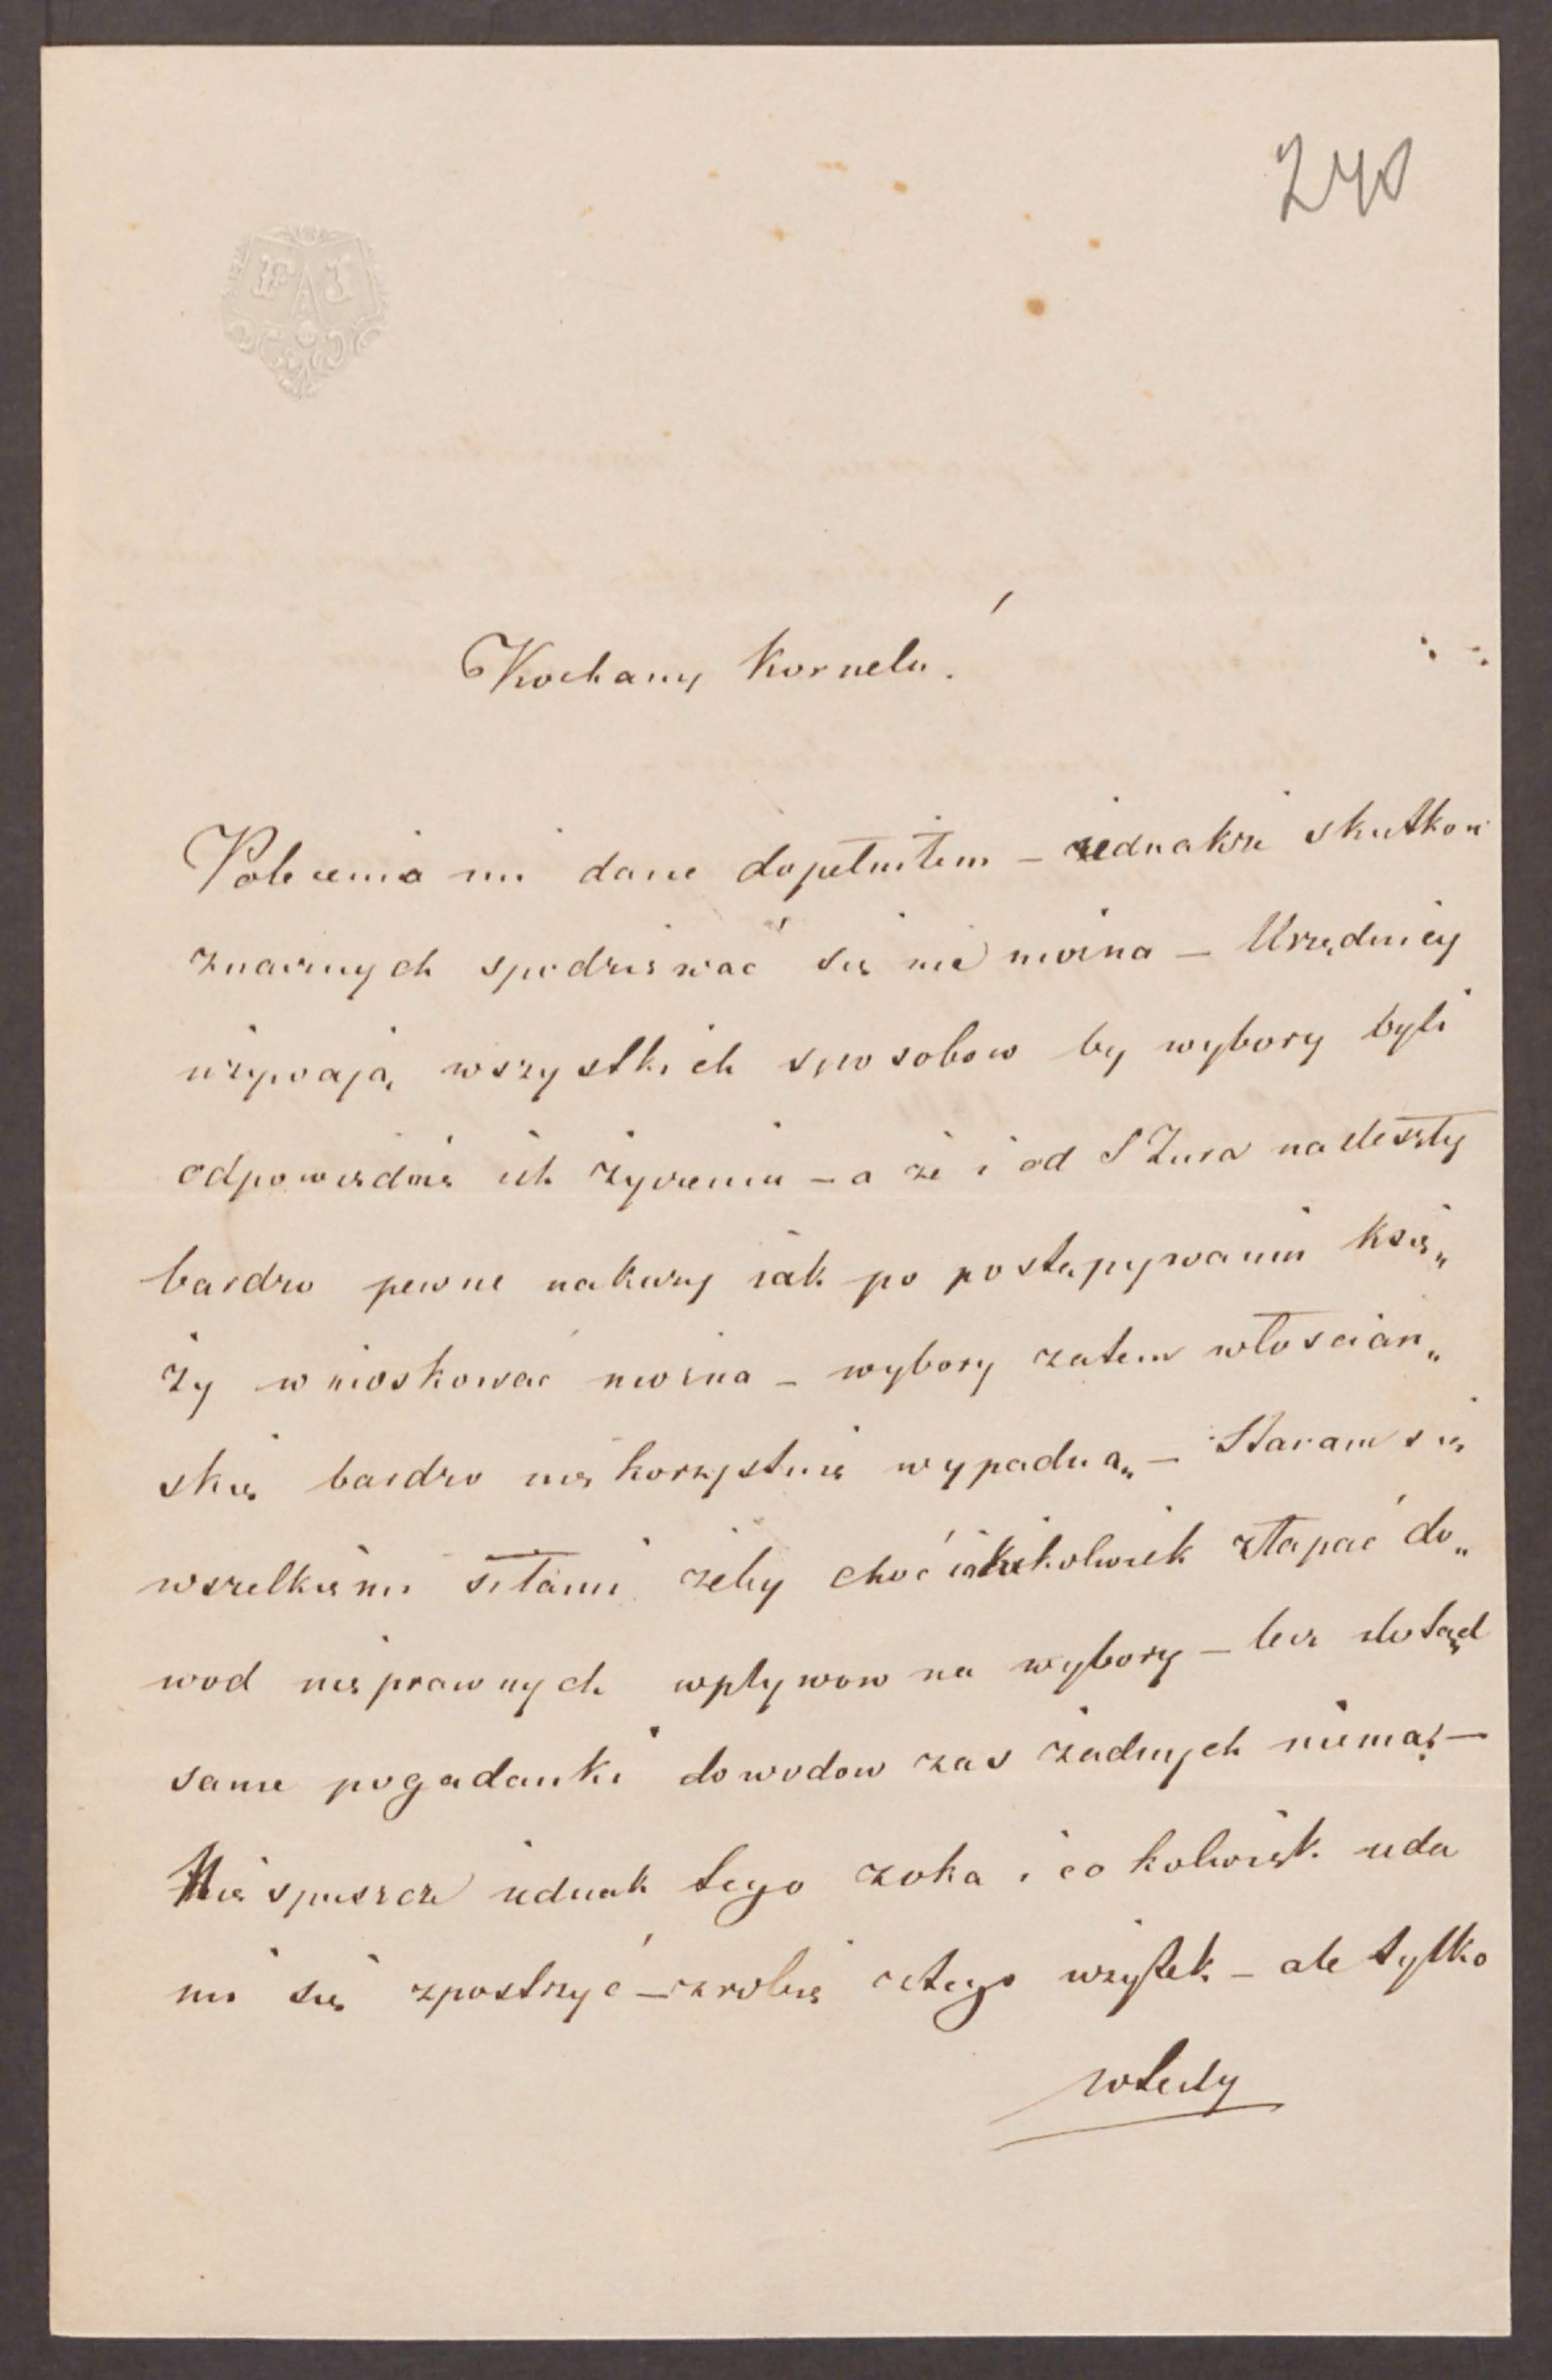 240
Kochany Kornelu!
Polecenia mi dane dopełniłem – jednakże skutkow
znacznych spodziewać się nie można – Urzędnicy
używają wszystkich sposobow by wybory byli
odpowiednie ich życzeniu – a że i od S Jura nadeszły
bardzo pewne nakazy jak po postępywaniu księ„
ży wnioskować można – wybory zatem włościan„
skie bardzo nie korzystnie wypadną – Staram się
wszelkiemi siłami żeby choć jakikolwiek złapać do„
wod nieprawnych wpływow na wybory – lecz dotąd
same pogadanki dowodow zas żadnych niema –
Nie spuszcze jednak tego zoka i co kolwiek uda
mi się zpostrzyć – zrobię ztego użytek – ale tylko
wtedy